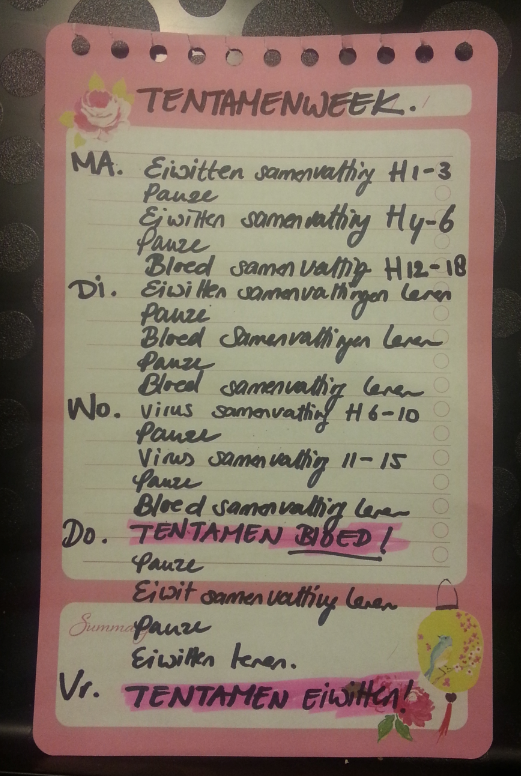 TENTAMENWEEK.
MA. Eiwitten samenvatting H1-3
Pauze
Eiwitten samenvatting H4-6
Pauze
Bloed samenvattig H12-18
Di. Eiwitten samenvattingen leren
Pauze
Bloed Samenvattingen leren
Pauze
Bloed samenvatting leren
Wo. virus samenvatting H6-10
Pauze
Virus samenvatting 11-15
Pauze
Bloed samenvatting leren
Do. TENTAMEN BlOED!
Pauze
Eiwit samenvatting leren
Summary Pauze
Eiwitten leren.
Vr. TENTAMEN Eiwitten!